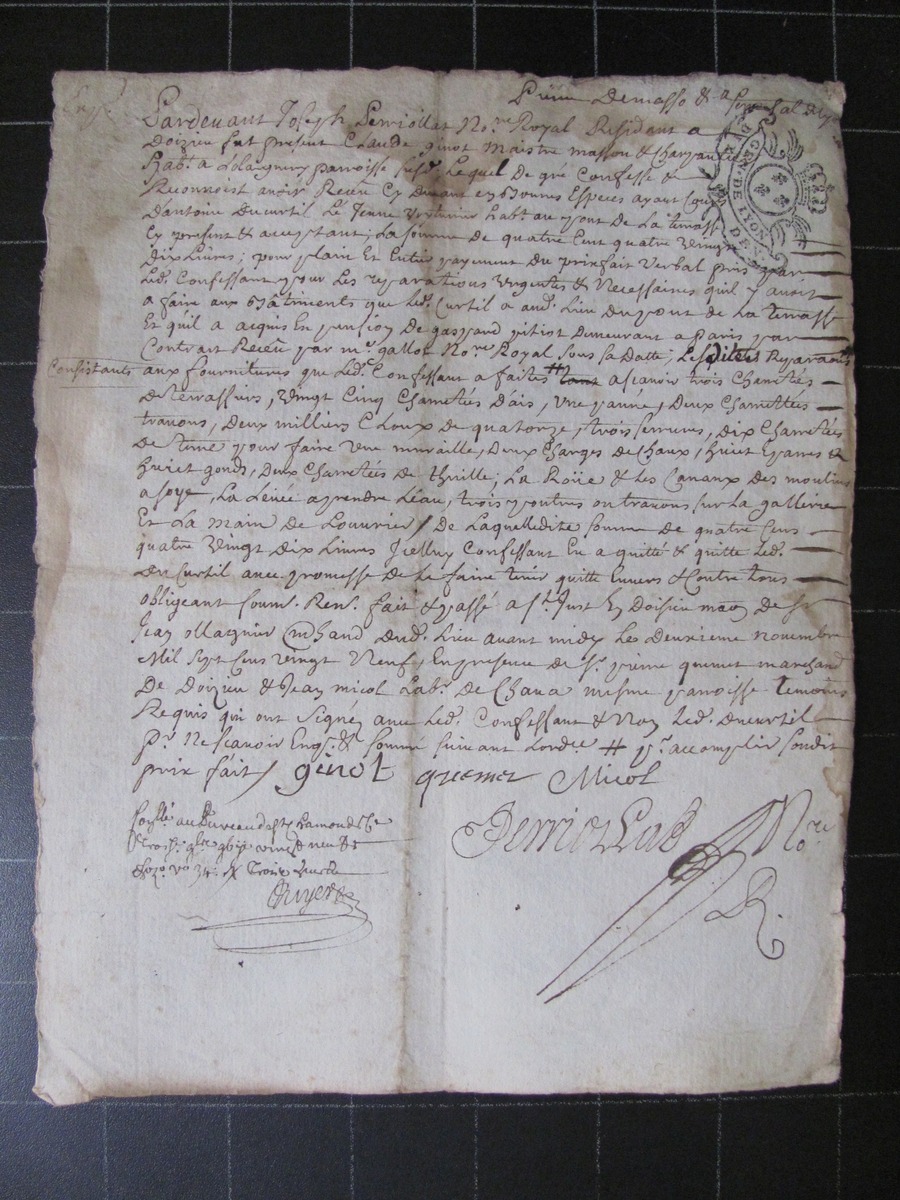 Pardevant Joseph Perriollat No.re Royal Residant a
GEN. DE LYON
Doizieu fut present Claude ginot maistre masson & Charpantier
hab.t a parroisse susd. Lequel De gré Confesse &
Reconnoist avoir Receu Cy Devant en Bonnes Especes
D'antoine Ducurtil Le Jeune hab.t au pont de La terrasse
Cy present & acceptant; La somme de quatre Cent quatre Vingt
dix Livres; pour plain Et Entier payement Du prixfait Verbal pris par
Led. Confessant pour Les reparations Urgentes & Necessaires quil y avoit
a faire aux Bâtiments que Led. Curtil a aud. Lieu Du pont de La terrasse
Et quil a acquis En pension De gaspard petist Demeurant a Paris par
Contract Receu par m.e gallot No.re Royal sous sa Datte; Lesdites Reparations
Consistants aux fournitures que Led. Confessant a faites # a scavoir trois Charretées
de terrassiers, Vingt Cinq Charretées D'ais, Une panne, Deux Charrettées
travons, Deux milliers Cloux de quatorze, trois serrures, Dix Charretées
De terre pour faire Une muraille, Deux Charges de Chaux, huict Eparres &
huict gonds, Deux Charretées de thuille; La Roüe & Les Canaux Des moulins
a soye, La Levée a prendre L'eau, trois poutres ou travons sur La gallerie
Et La main de Louvrier / De Laquelledite somme de quatre Cens
quatre Vingt Dix Livres Icelluy Confessant En a quitté & quitte Led.
Du Curtil avec promesse de Le faire tenir quitte Envers & Contre tous
obligeant soum. Ren. fait & passé a s.t Just En Doisieu maon De s.r
Jean Magnin mchand Dud. Lieu avant midy Le Deuxieme novembre
Mil Sept Cens Vingt Neuf, En presence de s.r pierre quemet marchand
De Doizieu & Jean micol Lab.r de Chava mesme parroisse temoins
Requis qui ont signé avec Led. Confessant & Non Led. Ducurtil
p.r Ne scavoir Enq.s & sommé suivant Lordce # p.r accomplir soudit
prix fait / ginot quemet Micol
Perriollat No.re
R.
au Bureau de St Chamond Le
vingt neuf
Troize